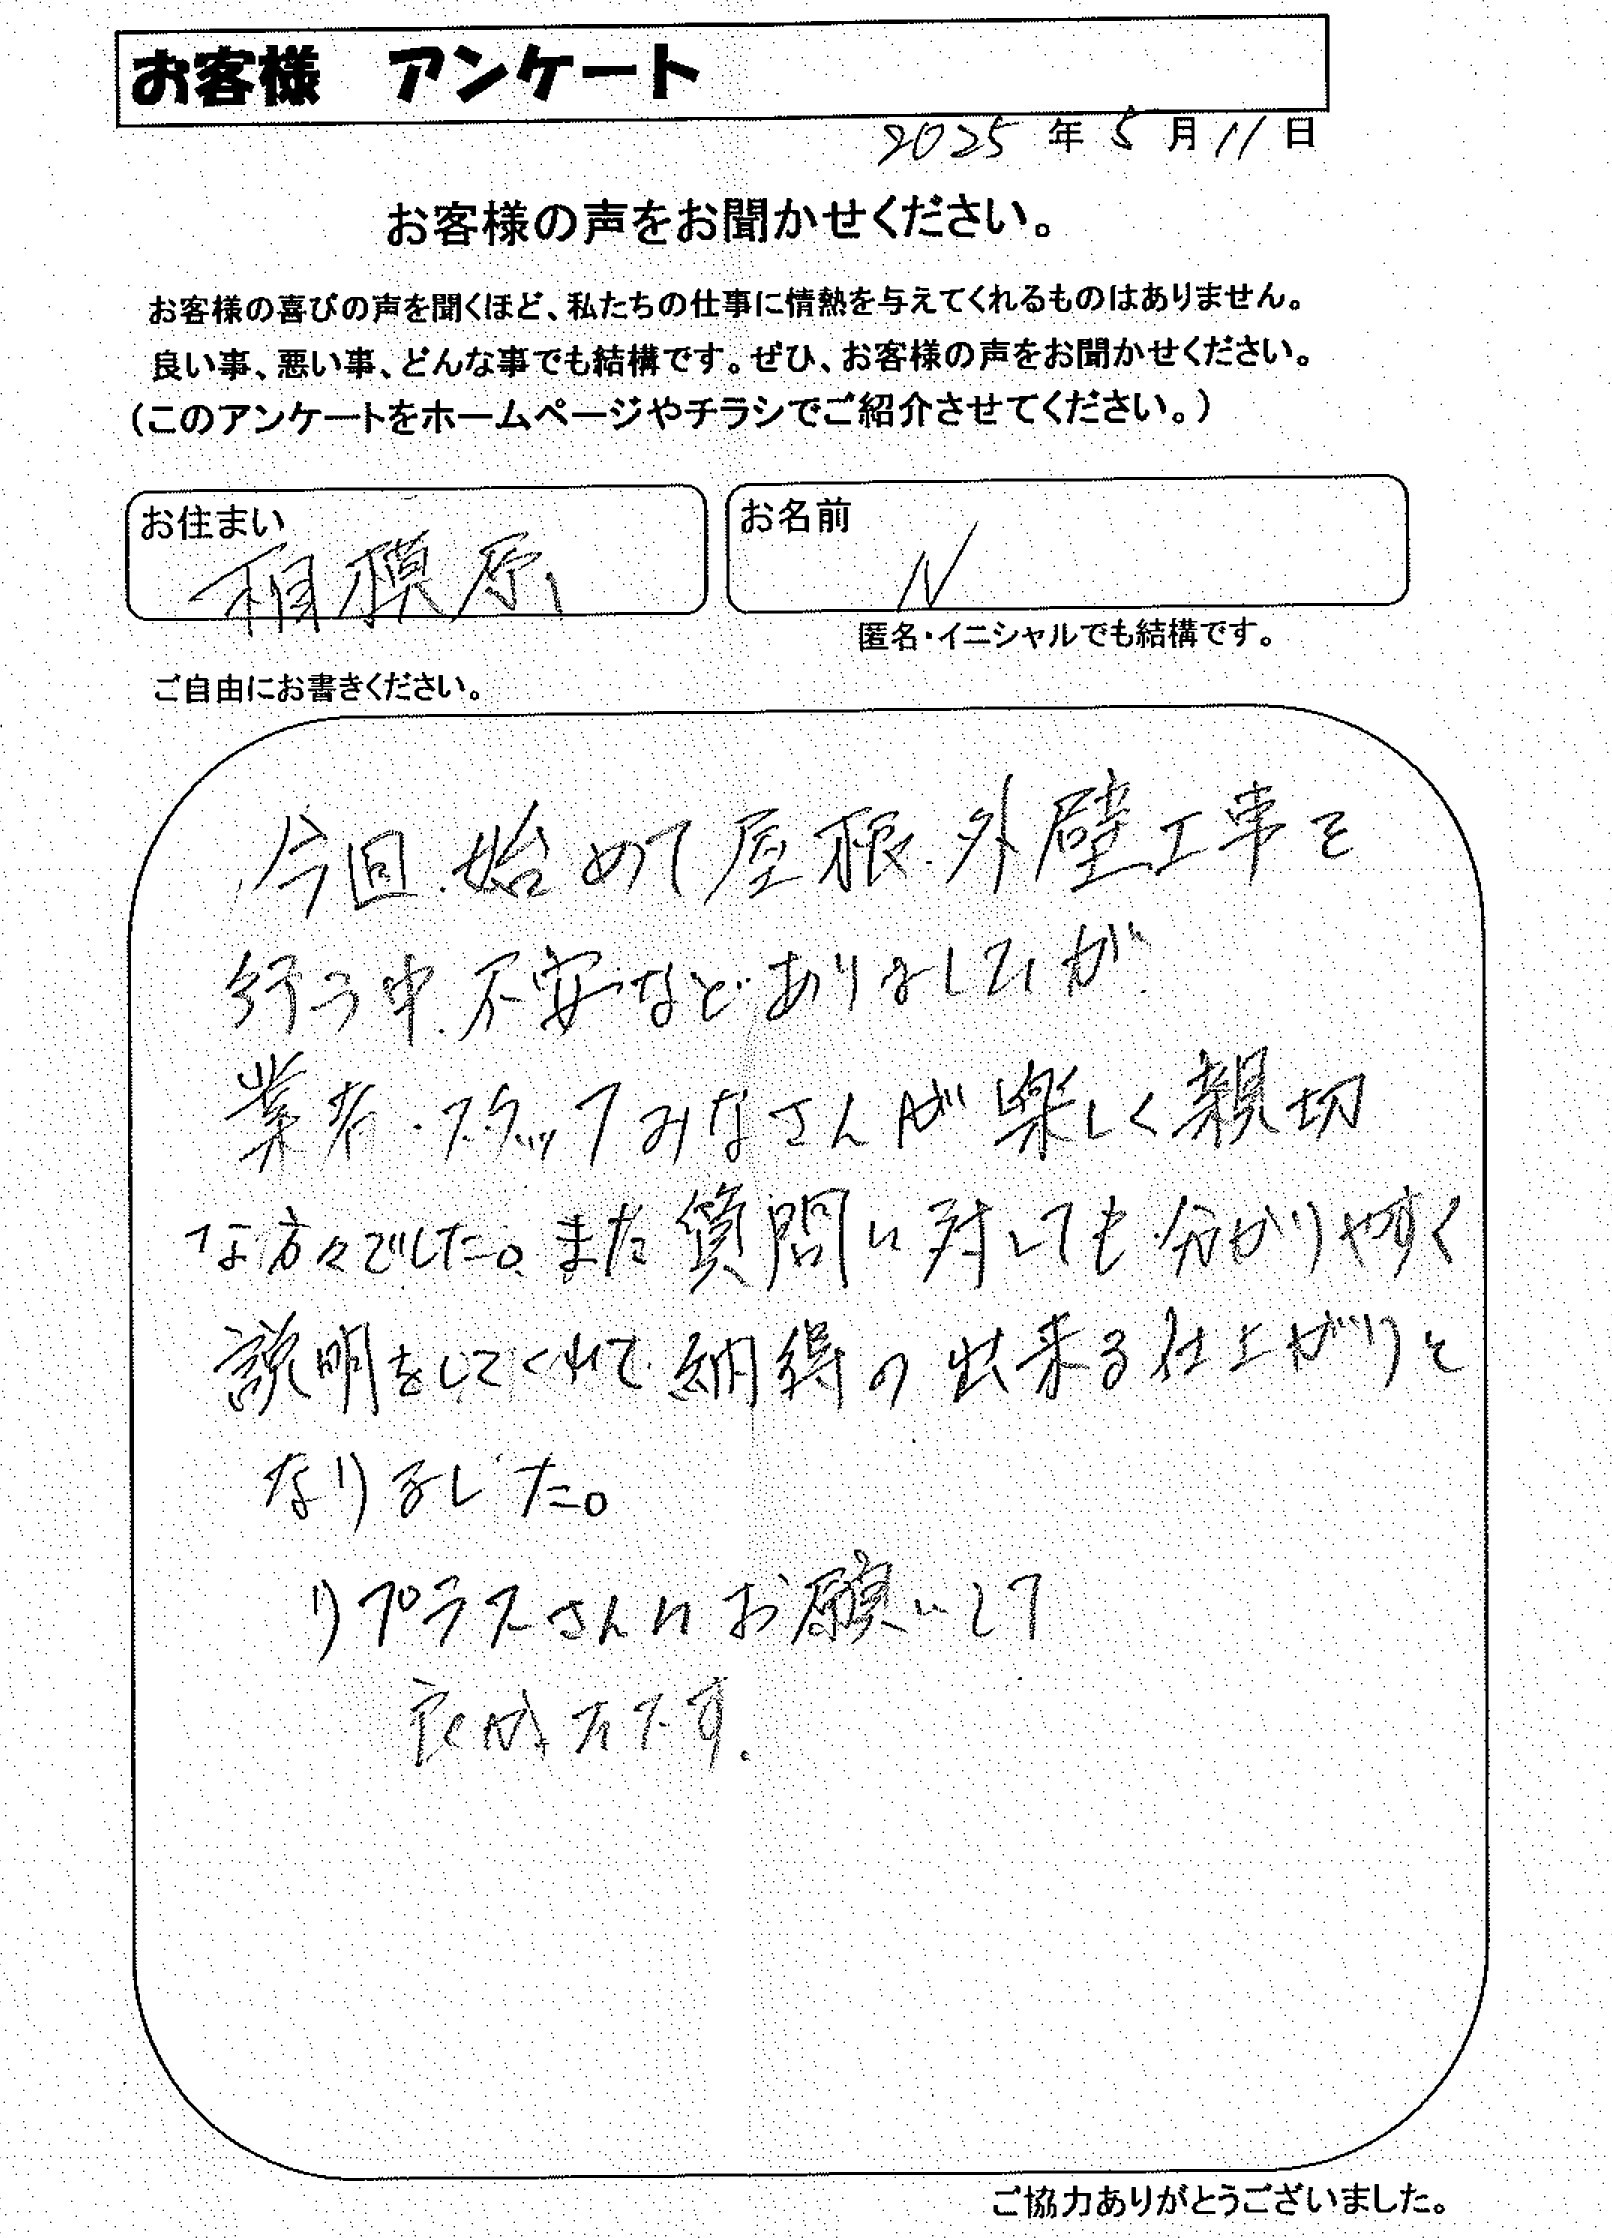 お客様 アンケート
2025年5月11日
お客様の声をお聞かせください。
お客様の喜びの声を聞くほど、私たちの仕事に情熱を与えてくれるものはありません。
良い事、悪い事、どんな事でも結構です。ぜひ、お客様の声をお聞かせください。
(このアンケートをホームページやチラシでご紹介させてください。)
お住まい
相模原
お名前
N
匿名・イニシャルでも結構です。
ご自由にお書きください。
今回、始めて屋根、外壁工事を
行う中、不安などありましたが、
業者・スタッフみなさんが楽しく親切
な方々でした。また質問に対しても分かりやすく
説明をしてくれて納得の出来る仕上がりと
なりました。
リプラスさんにお願いして
良かったです。
ご協力ありがとうございました。